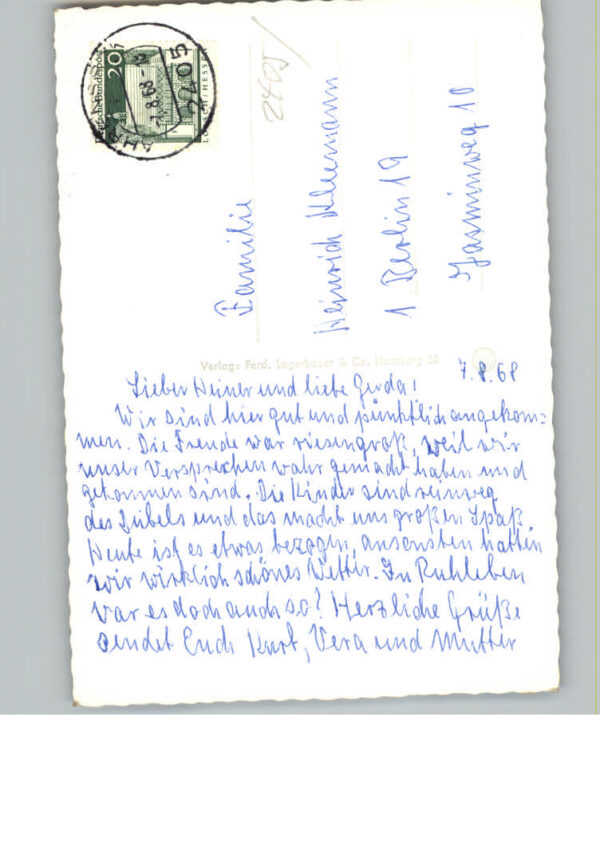 Deutsche Bundespost
20
LORSCH/HESSEN
2405
-7.8.68-
2405/
Familie
Heinrich Kleemann
1 Berlin 19
Jasminweg 10
Verlag: Ferd. Lagerbauer & Co. Hamburg 33
7.8.68
Lieber Heiner und liebe Gerda!
Wir sind hier gut und pünktlich angekom=
men. Die Freude war riesengroß, weil wir
unser Versprechen wahr gemacht haben und
gekommen sind. Die Kinder sind reinweg
des Jubels und das macht uns großen Spaß.
Heute ist es etwas bezogen, ansonsten hatten
wir wirklich schönes Wetter. In Ruhleben
war es doch auch so? Herzliche Grüße
sendet Euch Kurt, Vera und Mutter